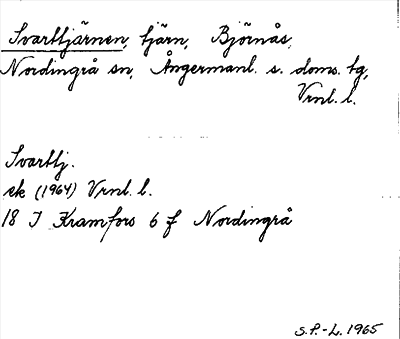 Svarttjärnen, tjärn, Björnås,
Nordingrå sn, Ångermanl. s. doms. tg,
Vrnl. l.
Svarttj.
ek (1964) Vrnl. l.
18 I Kramfors 6 f Nordingrå
S.P.-L. 1965